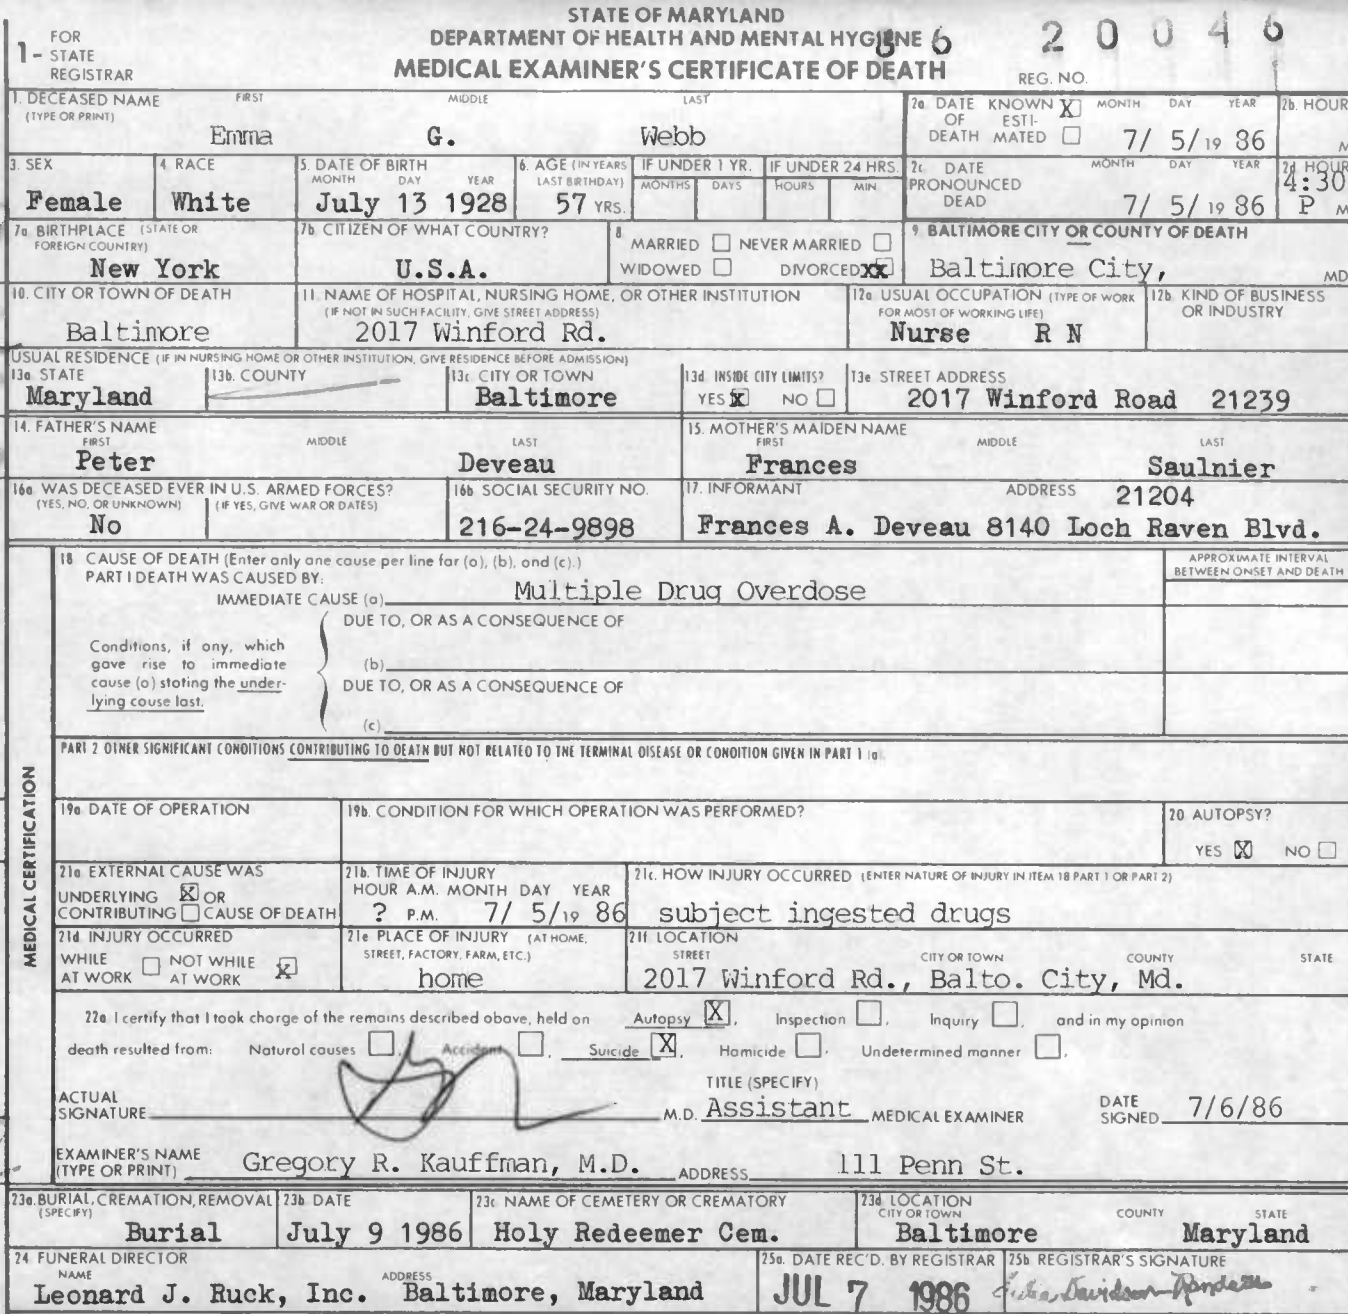 STATE OF MARYLAND
DEPARTMENT OF HEALTH AND MENTAL HYGIENE
MEDICAL EXAMINER'S CERTIFICATE OF DEATH
1- FOR STATE REGISTRAR
86 20046
REG. NO.
1. DECEASED NAME (TYPE OR PRINT) FIRST MIDDLE LAST
Emma G. Webb
2a DATE OF DEATH KNOWN X ESTIMATED MONTH DAY YEAR
7/ 5/19 86
2b. HOUR M
3. SEX
Female
4. RACE
White
5. DATE OF BIRTH MONTH DAY YEAR
July 13 1928
6. AGE (IN YEARS LAST BIRTHDAY)
57 YRS.
IF UNDER 1 YR. MONTHS DAYS
IF UNDER 24 HRS. HOURS MIN
2c. DATE PRONOUNCED DEAD MONTH DAY YEAR
7/ 5/19 86
2d HOUR
4:30 P M
7a BIRTHPLACE (STATE OR FOREIGN COUNTRY)
New York
7b CITIZEN OF WHAT COUNTRY?
U.S.A.
8 MARRIED NEVER MARRIED
WIDOWED DIVORCED XX
9 BALTIMORE CITY OR COUNTY OF DEATH
Baltimore City, MD
10. CITY OR TOWN OF DEATH
Baltimore
11. NAME OF HOSPITAL, NURSING HOME, OR OTHER INSTITUTION
(IF NOT IN SUCH FACILITY, GIVE STREET ADDRESS)
2017 Winford Rd.
12a USUAL OCCUPATION (TYPE OF WORK FOR MOST OF WORKING LIFE)
Nurse R N
12b. KIND OF BUSINESS OR INDUSTRY
USUAL RESIDENCE (IF IN NURSING HOME OR OTHER INSTITUTION, GIVE RESIDENCE BEFORE ADMISSION)
13a STATE
Maryland
13b. COUNTY
13c CITY OR TOWN
Baltimore
13d INSIDE CITY LIMITS?
YES X NO
13e STREET ADDRESS
2017 Winford Road 21239
14. FATHER'S NAME FIRST MIDDLE LAST
Peter Deveau
15. MOTHER'S MAIDEN NAME FIRST MIDDLE LAST
Frances Saulnier
16a WAS DECEASED EVER IN U.S. ARMED FORCES?
(YES, NO, OR UNKNOWN) (IF YES, GIVE WAR OR DATES)
No
16b SOCIAL SECURITY NO.
216-24-9898
17. INFORMANT ADDRESS
21204
Frances A. Deveau 8140 Loch Raven Blvd.
MEDICAL CERTIFICATION
18 CAUSE OF DEATH (Enter only one cause per line for (a), (b), and (c).)
PART I DEATH WAS CAUSED BY:
IMMEDIATE CAUSE (a) Multiple Drug Overdose
APPROXIMATE INTERVAL BETWEEN ONSET AND DEATH
DUE TO, OR AS A CONSEQUENCE OF
Conditions, if any, which gave rise to immediate cause (a) stating the underlying cause last.
(b)
DUE TO, OR AS A CONSEQUENCE OF
(c)
PART 2 OTHER SIGNIFICANT CONDITIONS CONTRIBUTING TO DEATH BUT NOT RELATED TO THE TERMINAL DISEASE OR CONDITION GIVEN IN PART 1 (a).
19a DATE OF OPERATION
19b. CONDITION FOR WHICH OPERATION WAS PERFORMED?
20 AUTOPSY?
YES X NO
21a EXTERNAL CAUSE WAS
UNDERLYING X OR
CONTRIBUTING CAUSE OF DEATH
21b. TIME OF INJURY
HOUR A.M. MONTH DAY YEAR
? P.M. 7/ 5/19 86
21c. HOW INJURY OCCURRED (ENTER NATURE OF INJURY IN ITEM 18 PART 1 OR PART 2)
subject ingested drugs
21d INJURY OCCURRED
WHILE AT WORK NOT WHILE AT WORK X
21e PLACE OF INJURY (AT HOME, STREET, FACTORY, FARM, ETC.)
home
21f LOCATION
STREET CITY OR TOWN COUNTY STATE
2017 Winford Rd., Balto. City, Md.
22a I certify that I took charge of the remains described above, held on Autopsy X, Inspection , Inquiry , and in my opinion
death resulted from: Natural causes , Accident , Suicide X, Homicide , Undetermined manner .
ACTUAL SIGNATURE M.D.
TITLE (SPECIFY)
Assistant MEDICAL EXAMINER
DATE SIGNED 7/6/86
EXAMINER'S NAME (TYPE OR PRINT) Gregory R. Kauffman, M.D. ADDRESS 111 Penn St.
23a. BURIAL, CREMATION, REMOVAL (SPECIFY)
Burial
23b. DATE
July 9 1986
23c. NAME OF CEMETERY OR CREMATORY
Holy Redeemer Cem.
23d LOCATION CITY OR TOWN COUNTY STATE
Baltimore Maryland
24 FUNERAL DIRECTOR
NAME ADDRESS
Leonard J. Ruck, Inc. Baltimore, Maryland
25a. DATE REC'D. BY REGISTRAR
JUL 7 1986
25b REGISTRAR'S SIGNATURE
Davidson-Randall